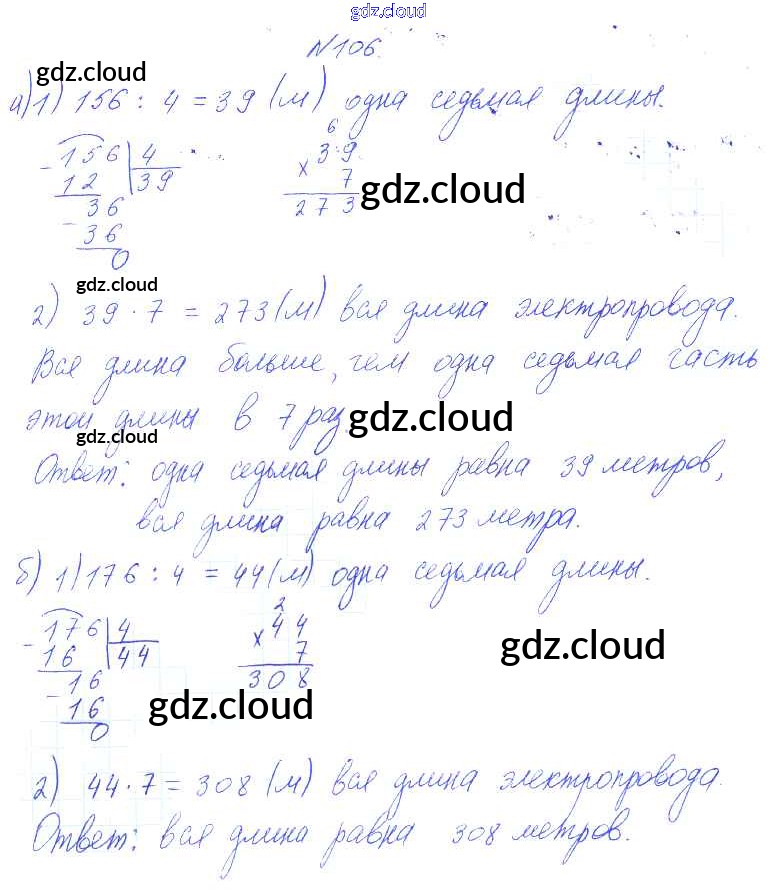 gdz.cloud
№106.
gdz.cloud
а) 1) 156 : 4 = 39 (м) одна седьмая длины.
6
- 156 | 4 39
12 | 39 × 7
36 273 gdz.cloud
- 36
0
gdz.cloud
2) 39 · 7 = 273 (м) вся длина электропровода.
Вся длина больше, чем одна седьмая часть
этой длины в 7 раз. gdz.cloud
gdz.cloud
Ответ: одна седьмая длины равна 39 метров,
вся длина равна 273 метра.
б) 1) 176 : 4 = 44 (м) одна седьмая длины.
2
- 176 | 4 × 44
16 | 44 7 gdz.cloud
16 308
- 16 gdz.cloud
0
2) 44 · 7 = 308 (м) вся длина электропровода.
Ответ: вся длина равна 308 метров.